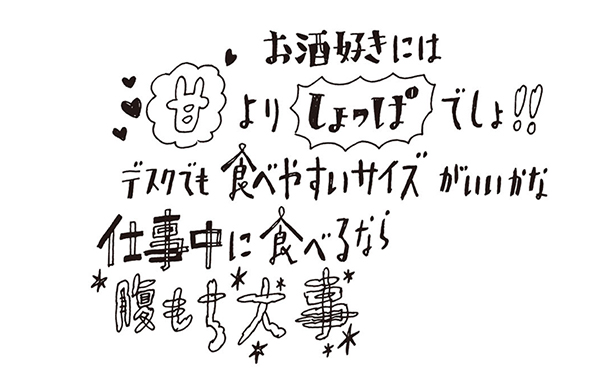 お酒好きには
甘より しょっぱ でしょ!!
デスクでも食べやすいサイズがいいかな
仕事中に食べるなら
腹もち大事